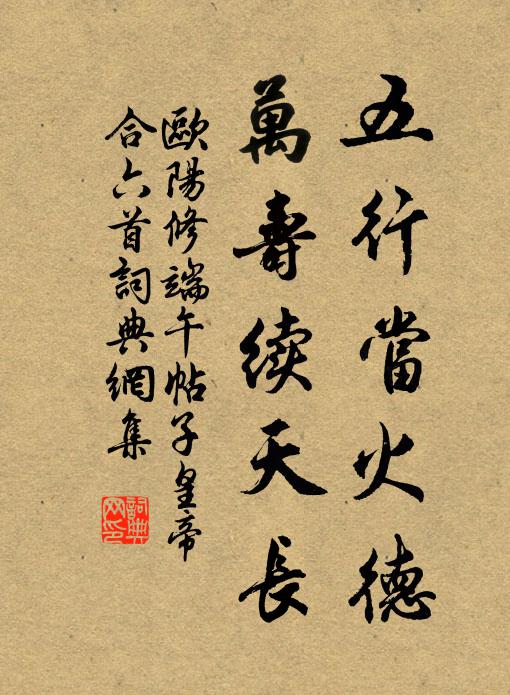 五行當火德
萬壽續天長
歐陽修端午帖子皇帝
合六首詞典網集
詞典
网印